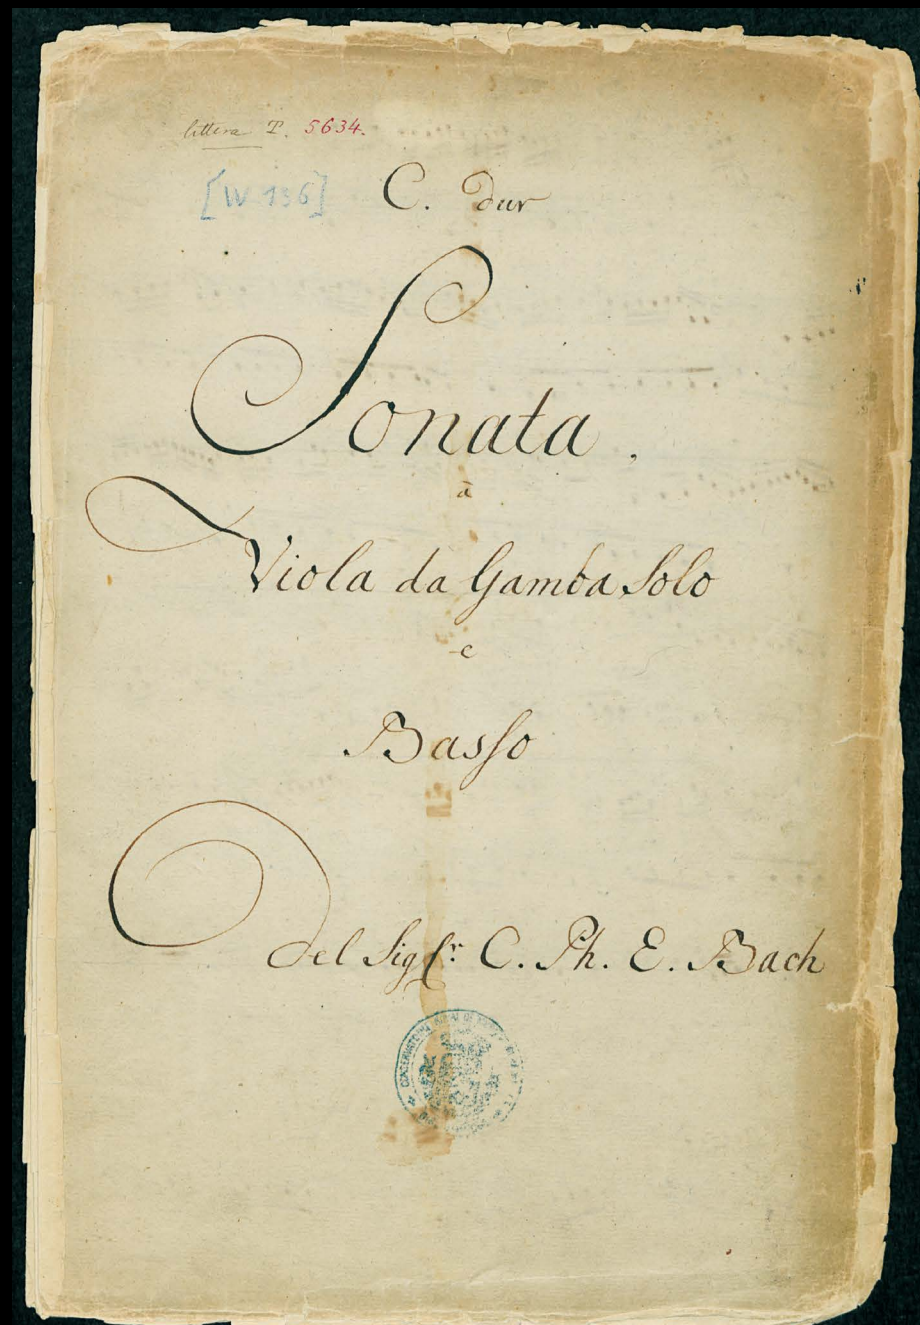 littera T. 5634.
[W 136]
C. dur
Sonata.
à
Viola da Gamba Solo
e
Basso
Del Sigr. C. Ph. E. Bach
CONSERVATOIRE